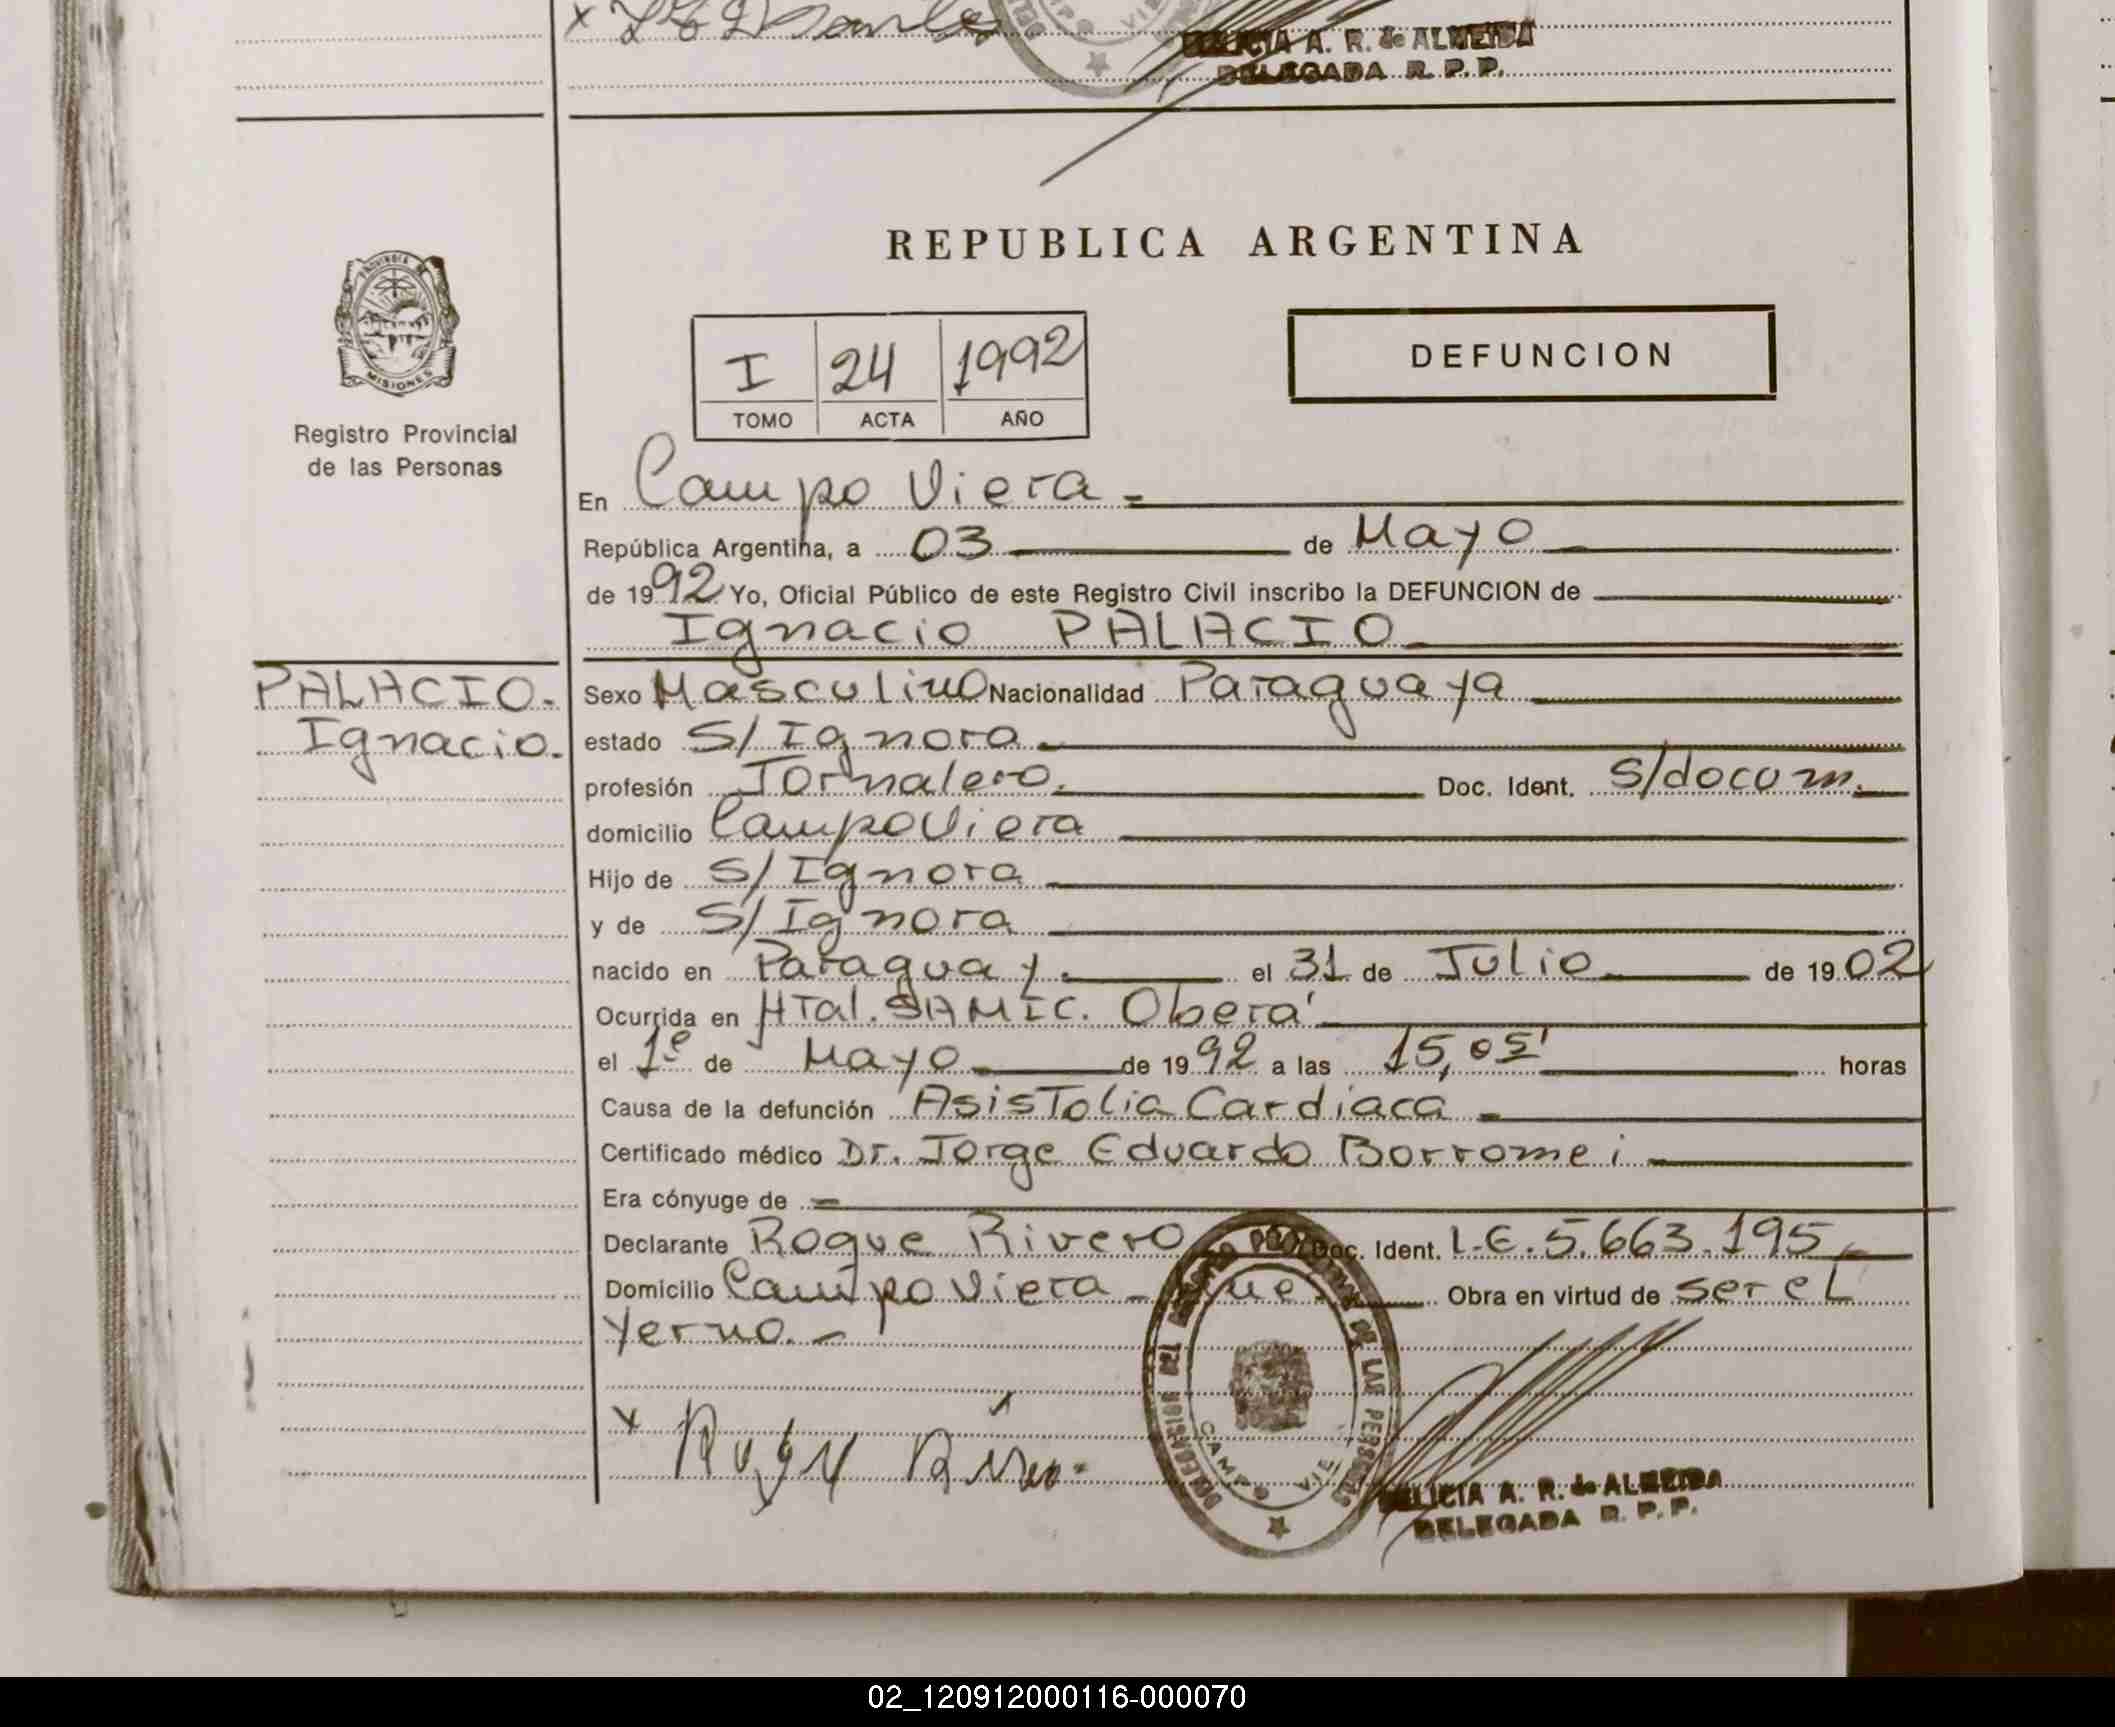 FELICIA A. R. de ALMEIDA
DELEGADA R. P. P.
PROVINCIA DE
MISIONES
Registro Provincial
de las Personas
REPUBLICA ARGENTINA
I 24 1992
TOMO ACTA AÑO
DEFUNCION
En Campo Viera.=
República Argentina, a 03 de Mayo
de 1992 Yo, Oficial Público de este Registro Civil inscribo la DEFUNCION de
Ignacio PALACIO
PALACIO.
Ignacio.
Sexo Masculino Nacionalidad Paraguaya
estado S/Ignora
profesión Jornalero. Doc. Ident. S/docum.
domicilio Campo Viera
Hijo de S/Ignora
y de S/Ignora
nacido en Paraguay. el 31 de Julio de 1902
Ocurrida en Htal. SAMIC. Oberá
el 1º de Mayo de 1992 a las 15,05' horas
Causa de la defunción Asistolia Cardiaca
Certificado médico Dr. Jorge Eduardo Borromei
Era cónyuge de
Declarante Roque Rivero Doc. Ident. L.E. 5.663.195
Domicilio Campo Viera - que Obra en virtud de ser el
Yerno.-
x
DELEGACION DEL REGISTRO PROVINCIAL DE LAS PERSONAS
CAMPO VIERA
FELICIA A. R. de ALMEIDA
DELEGADA R. P. P.
02_120912000116-000070